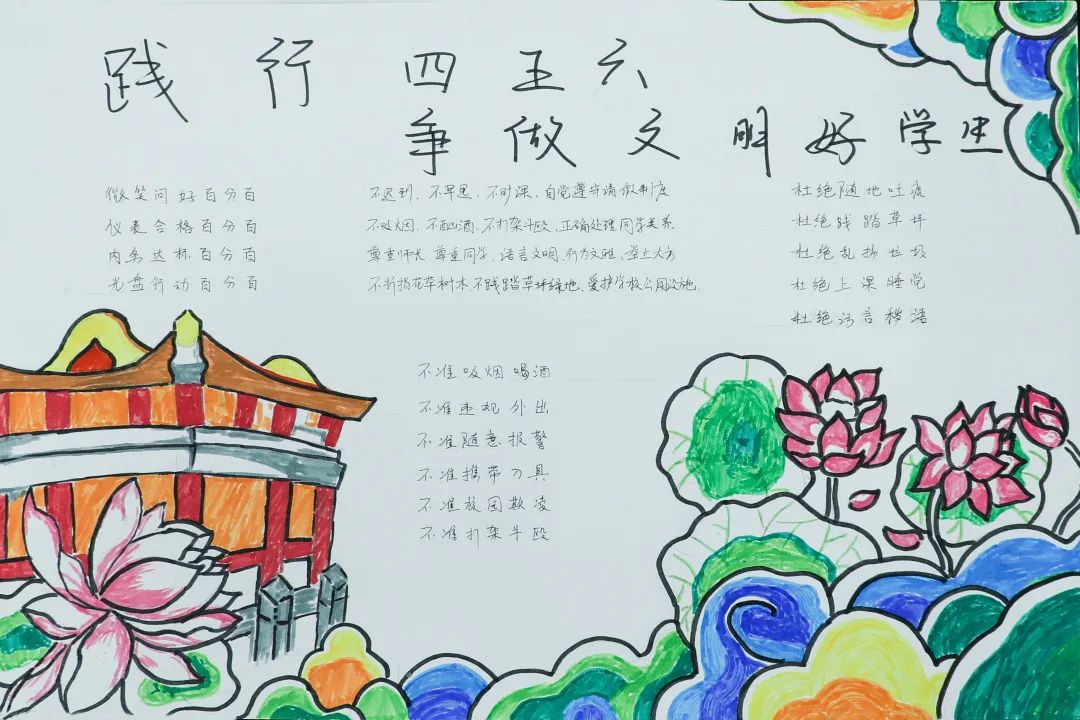 践行四五六
争做文明好学生
微笑问好百分百
仪表合格百分百
内务达标百分百
光盘行动百分百
不迟到、不早退、不旷课、自觉遵守请假制度
不吸烟、不酗酒、不打架斗殴、正确处理同学关系
尊重师长、尊重同学、语言文明、行为文雅、举止大方
不折损花草树木、不践踏草坪绿地、爱护学校公用设施.
杜绝随地吐痰
杜绝践踏草坪
杜绝乱扔垃圾
杜绝上课睡觉
杜绝污言秽语
不准吸烟喝酒
不准违规外出
不准随意报警
不准携带刀具
不准校园欺凌
不准打架斗殴